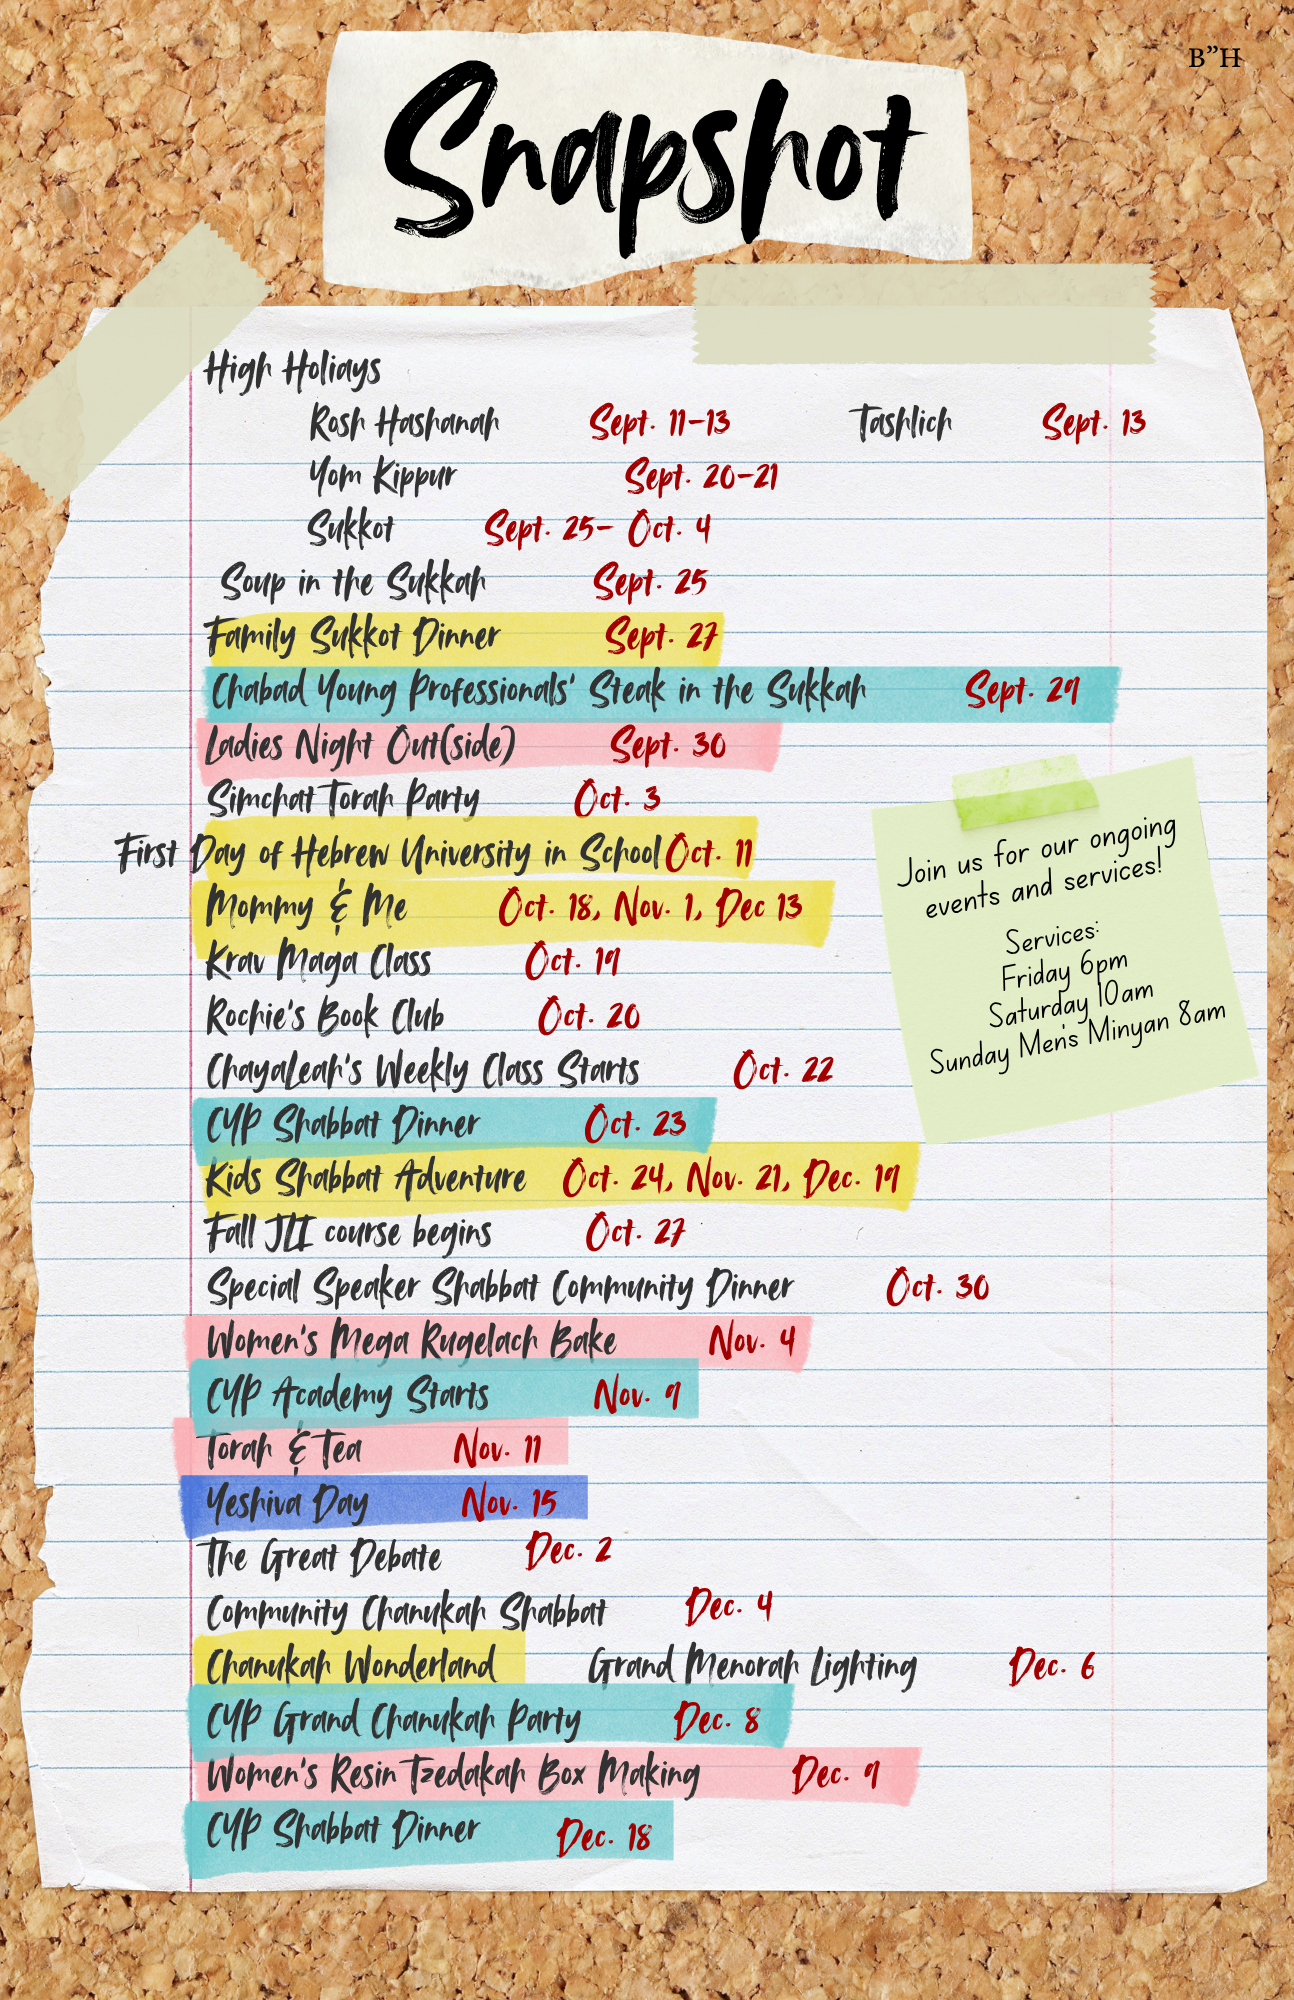 B"H
Snapshot
High Holiays
Rosh Hashanah Sept. 11-13 Tashlich Sept. 13
Yom Kippur Sept. 20-21
Sukkot Sept. 25- Oct. 4
Soup in the Sukkah Sept. 25
Family Sukkot Dinner Sept. 27
Chabad Young Professionals' Steak in the Sukkah Sept. 29
Ladies Night Out(side) Sept. 30
Simchat Torah Party Oct. 3
First Day of Hebrew University in School Oct. 11
Mommy & Me Oct. 18, Nov. 1, Dec 13
Krav Maga Class Oct. 19
Rochie's Book Club Oct. 20
ChayaLeah's Weekly Class Starts Oct. 22
CYP Shabbat Dinner Oct. 23
Kids Shabbat Adventure Oct. 24, Nov. 21, Dec. 19
Fall JLI course begins Oct. 27
Special Speaker Shabbat Community Dinner Oct. 30
Women's Mega Rugelach Bake Nov. 4
CYP Academy Starts Nov. 9
Torah & Tea Nov. 11
Yeshiva Day Nov. 15
The Great Debate Dec. 2
Community Chanukah Shabbat Dec. 4
Chanukah Wonderland Grand Menorah Lighting Dec. 6
CYP Grand Chanukah Party Dec. 8
Women's Resin Tzedakah Box Making Dec. 9
CYP Shabbat Dinner Dec. 18
Join us for our ongoing
events and services!
Services:
Friday 6pm
Saturday 10am
Sunday Men's Minyan 8am